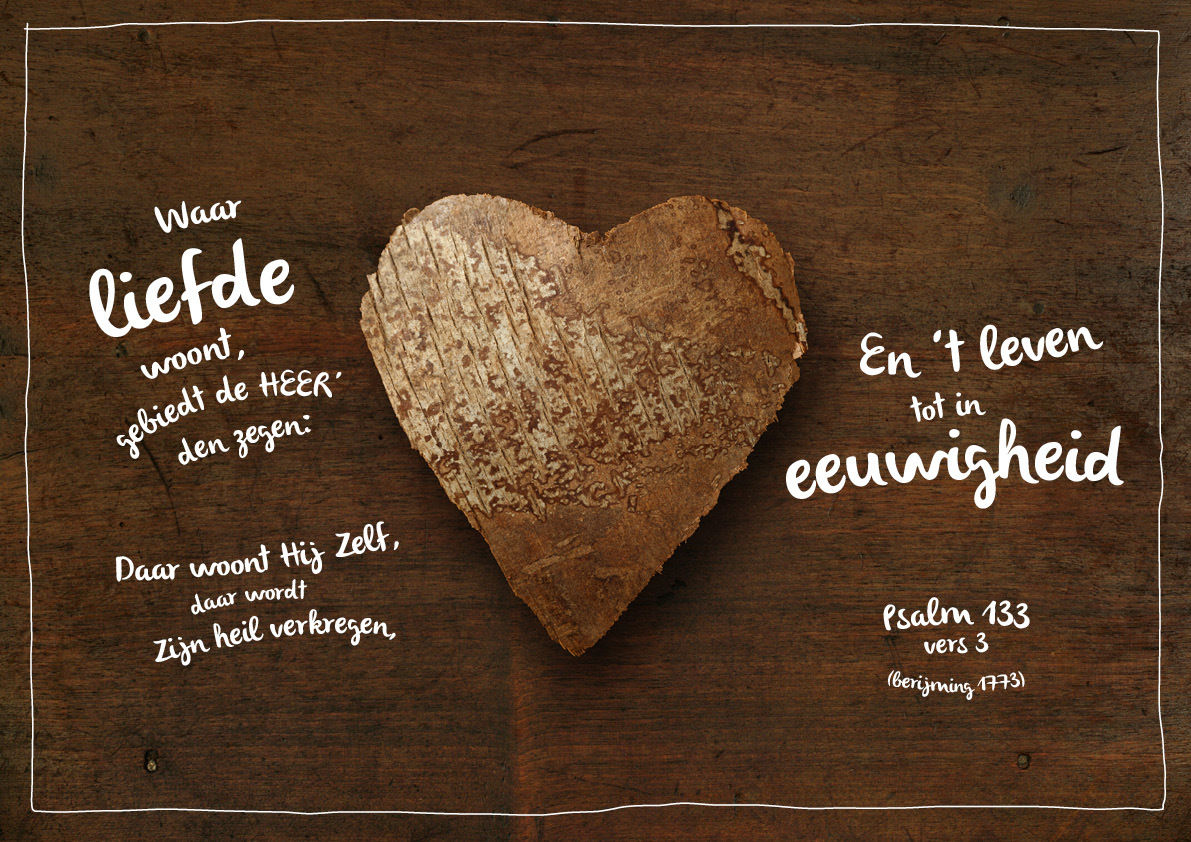 Waar
liefde
woont,
gebiedt de HEER'
den zegen:
Daar woont Hij Zelf,
daar wordt
Zijn heil verkregen,
En 't leven
tot in
eeuwigheid
Psalm 133
vers 3
(berijming 1773)